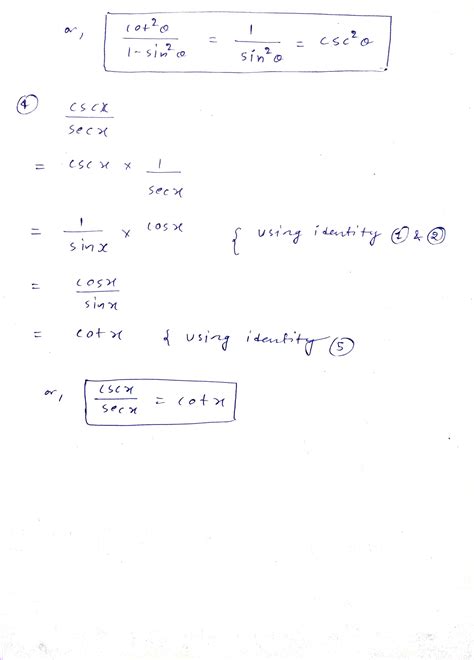 or, cot²θ / 1-sin²θ = 1 / sin²θ = csc²θ
④ cscx / secx
= cscx × 1 / secx
= 1 / sinx × cosx { using identity ① & ②
= cosx / sinx
= cotx { using identity ⑤
or, cscx / secx = cotx